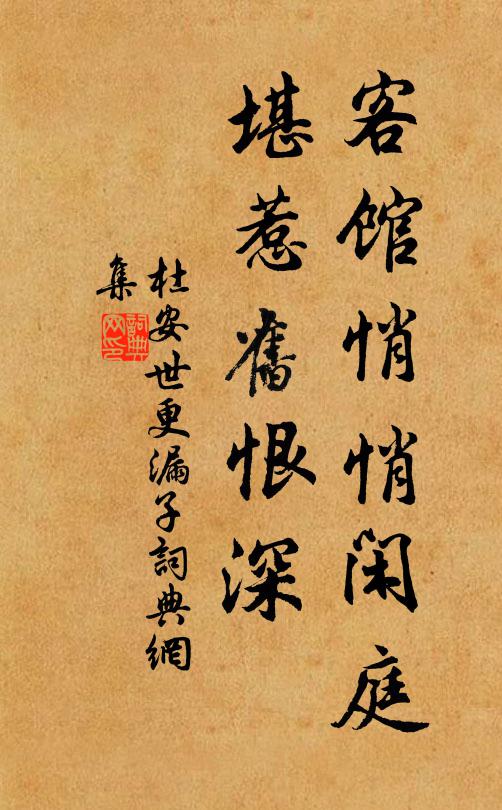 客馆悄悄闲庭
堪惹舊恨深
杜安世更漏子詞典網
集
詞典网印